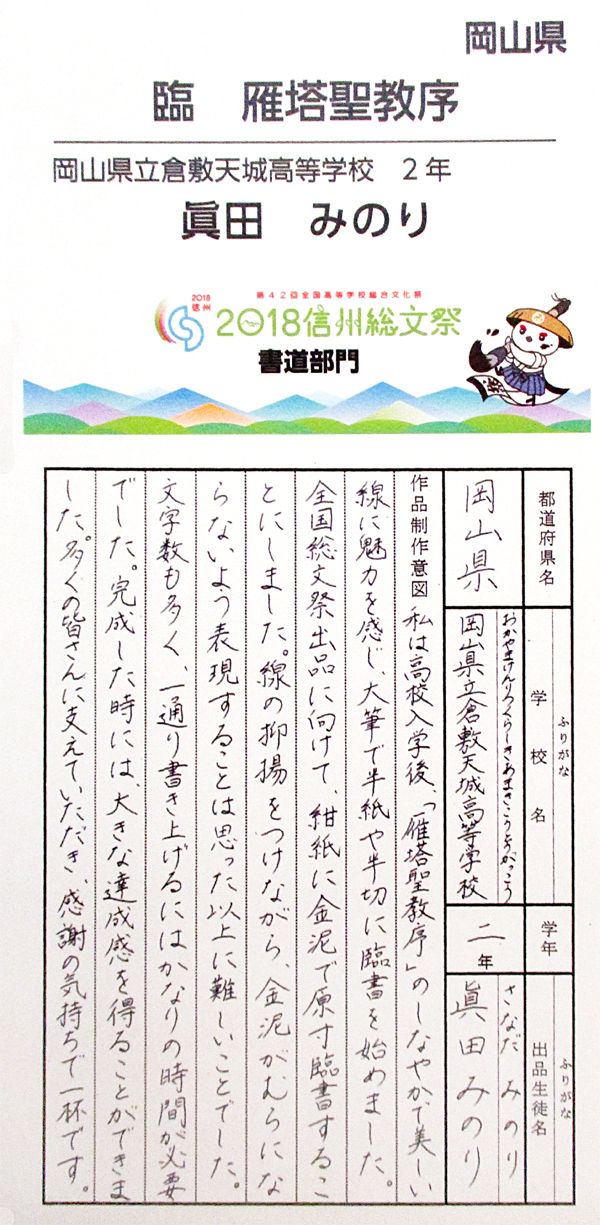 岡山県
臨　雁塔聖教序
岡山県立倉敷天城高等学校　２年
眞田　みのり
2018
信州
第４２回全国高等学校総合文化祭
2018信州総文祭
書道部門
都道府県名
岡山県
ふりがな
学校名
おかやまけんりつくらしきあまきこうとうがっこう
岡山県立倉敷天城高等学校
学年
二年
ふりがな
出品生徒名
さなだ　みのり
眞田みのり
作品制作意図　私は高校入学後、「雁塔聖教序」のしなやかで美しい
線に魅力を感じ、大筆で半紙や半切に臨書を始めました。
全国総文祭出品に向けて、紺紙に金泥で原寸臨書するこ
とにしました。線の抑揚をつけながら、金泥がむらにな
らないよう表現することは思った以上に難しいことでした。
文字数も多く、一通り書き上げるにはかなりの時間が必要
でした。完成した時には、大きな達成感を得ることができま
した。多くの皆さんに支えていただき、感謝の気持ちで一杯です。